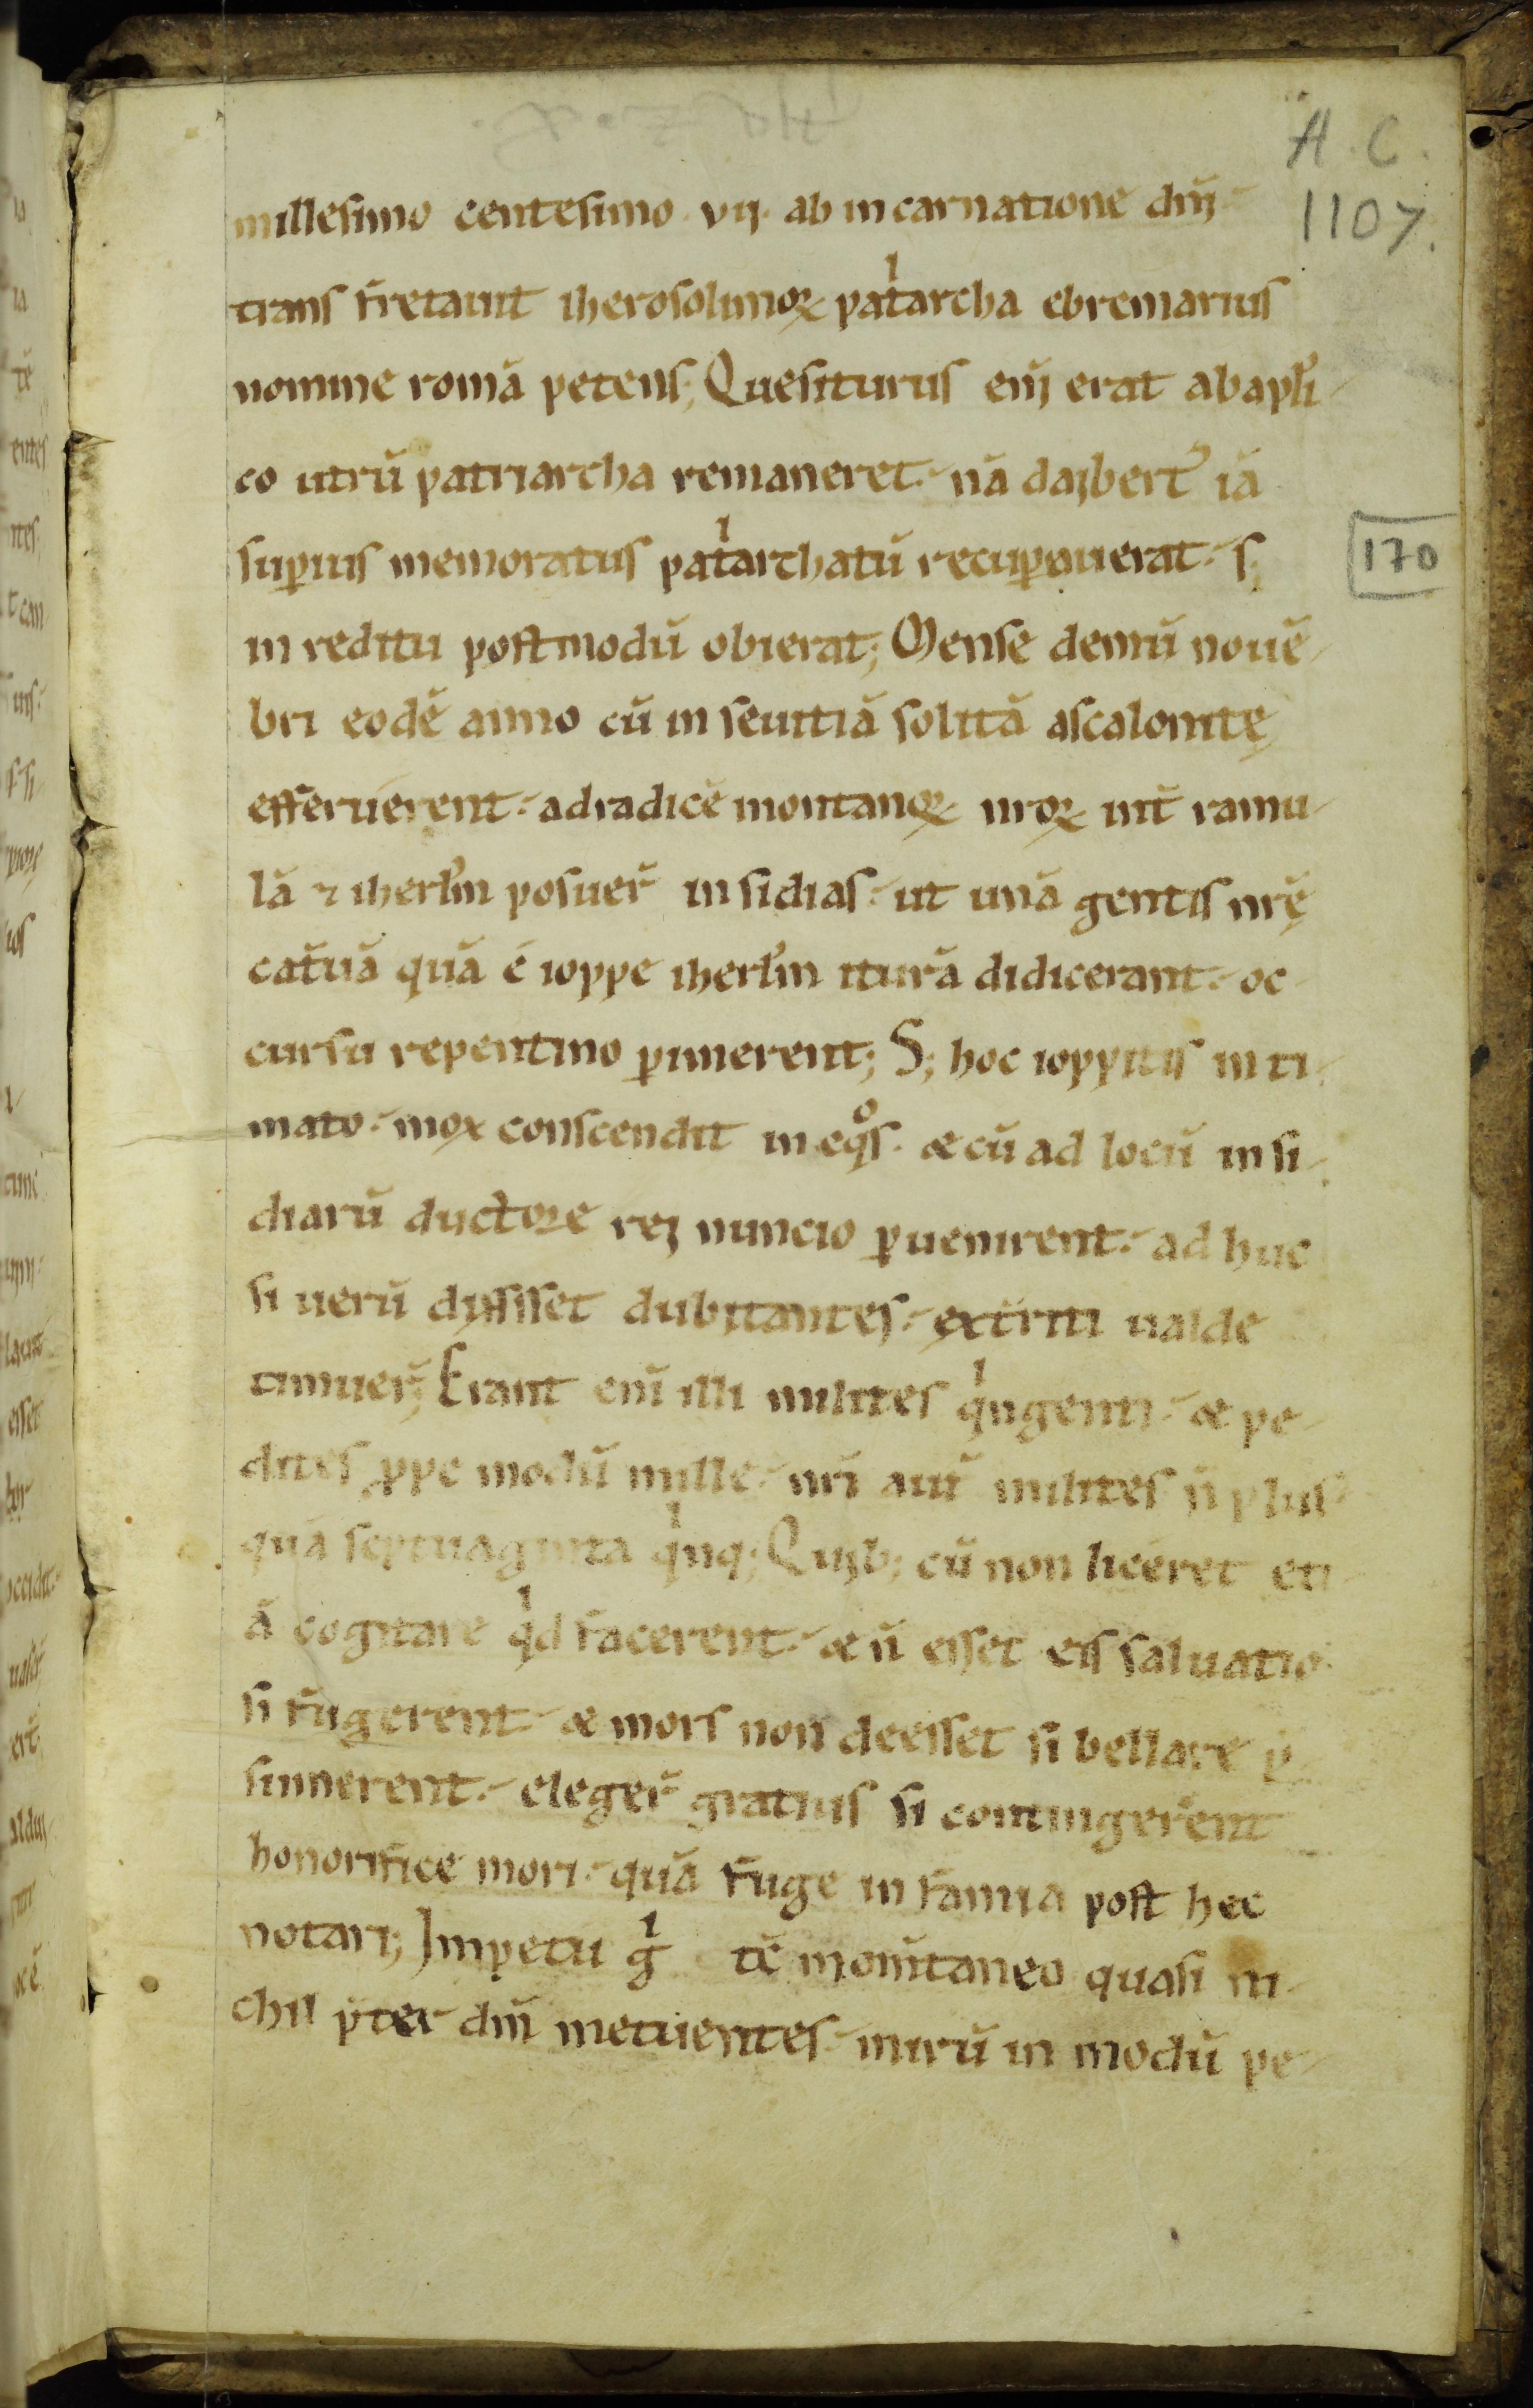 A. C.
1107.
millesimo centesimo · vij · ab in carnatione dnı̄
trans fretauit iherosolimoꝝ patͥarcha ebremarius
nomine romā petens; Quesiturus enı̄ erat ab apl̄i
co utrū patriarcha remaneret. nā daiberť iā
suꝑius memoratus patͥarchatū recuꝑauerat. s;
in reditu postmodū obierat; Mense demū nouē
bri eodē anno cū in seuitiā solitā ascalonitę
efferuerent. ad radicē montanoꝝ nroꝝ int̄ ramu
lā ⁊ iherlm̄ posuer̄ in sidias. ut unā gentis nrę̄
cat̄uā quā é ioppe iherlm̄ iturā didicerant. oc
cursu repentino ꝑimerent; S; hoc ioppitis in ti
mato. mox conscendit in eqͦs. æ cū ad locū in si
diarū ductore rei nuncio ꝑuenirent. ad huc
si uerū dixisset dubitantes. exťriti ualde
timuer̄; Erant enı̄ illi milites qͥngenti. æ pe
dites ꝓpe modū mille. nrı̄ aut̄ milites n̄ plus
quā septuaginta qͥnq; Quib; cū non liceret eti
ā cogitare qͥd facerent. æ n̄ esset eis saluatio
si fugerent. æ mors non deesset si bellare p̄
sumerent. eleger̄ gratius si contingerent
honorifice mori. quā fuge in famia post hec
notari; Impetu gͥ tē momı̄taneo quasi ni
chil p̄ter dm̄ metuentes. mirū in modū pe
170